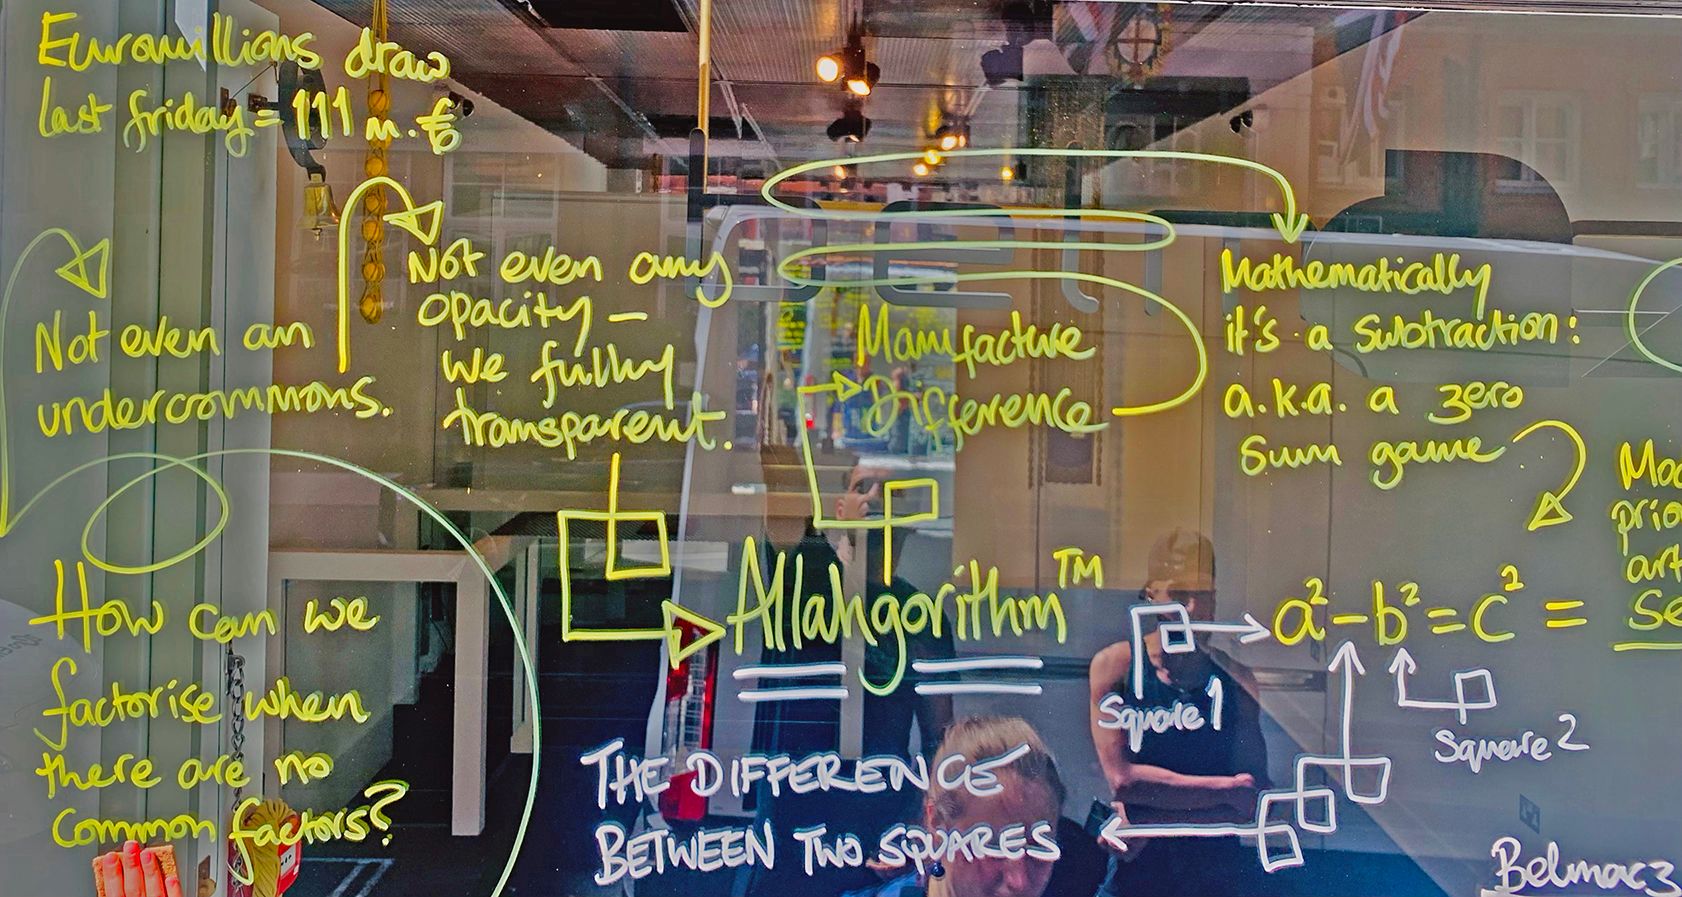 Euromillions draw
last friday = 111 m. €
Not even an
undercommons.
Not even any
opacity –
we fully
transparent.
Manufacture
Difference
Mathematically
it's a subtraction:
a.k.a. a zero
sum game
How can we
factorise when
there are no
common factors?
Allahgorithm™
a² – b² = c² =
Square 1
Square 2
THE DIFFERENCE
BETWEEN TWO SQUARES
Belmacz